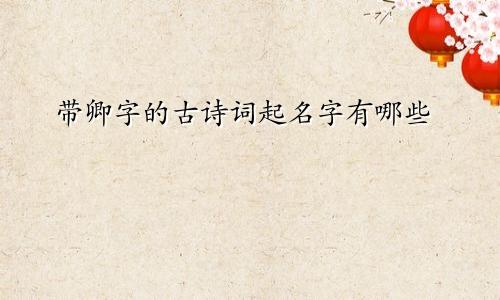 带卿字的古诗词起名字有哪些